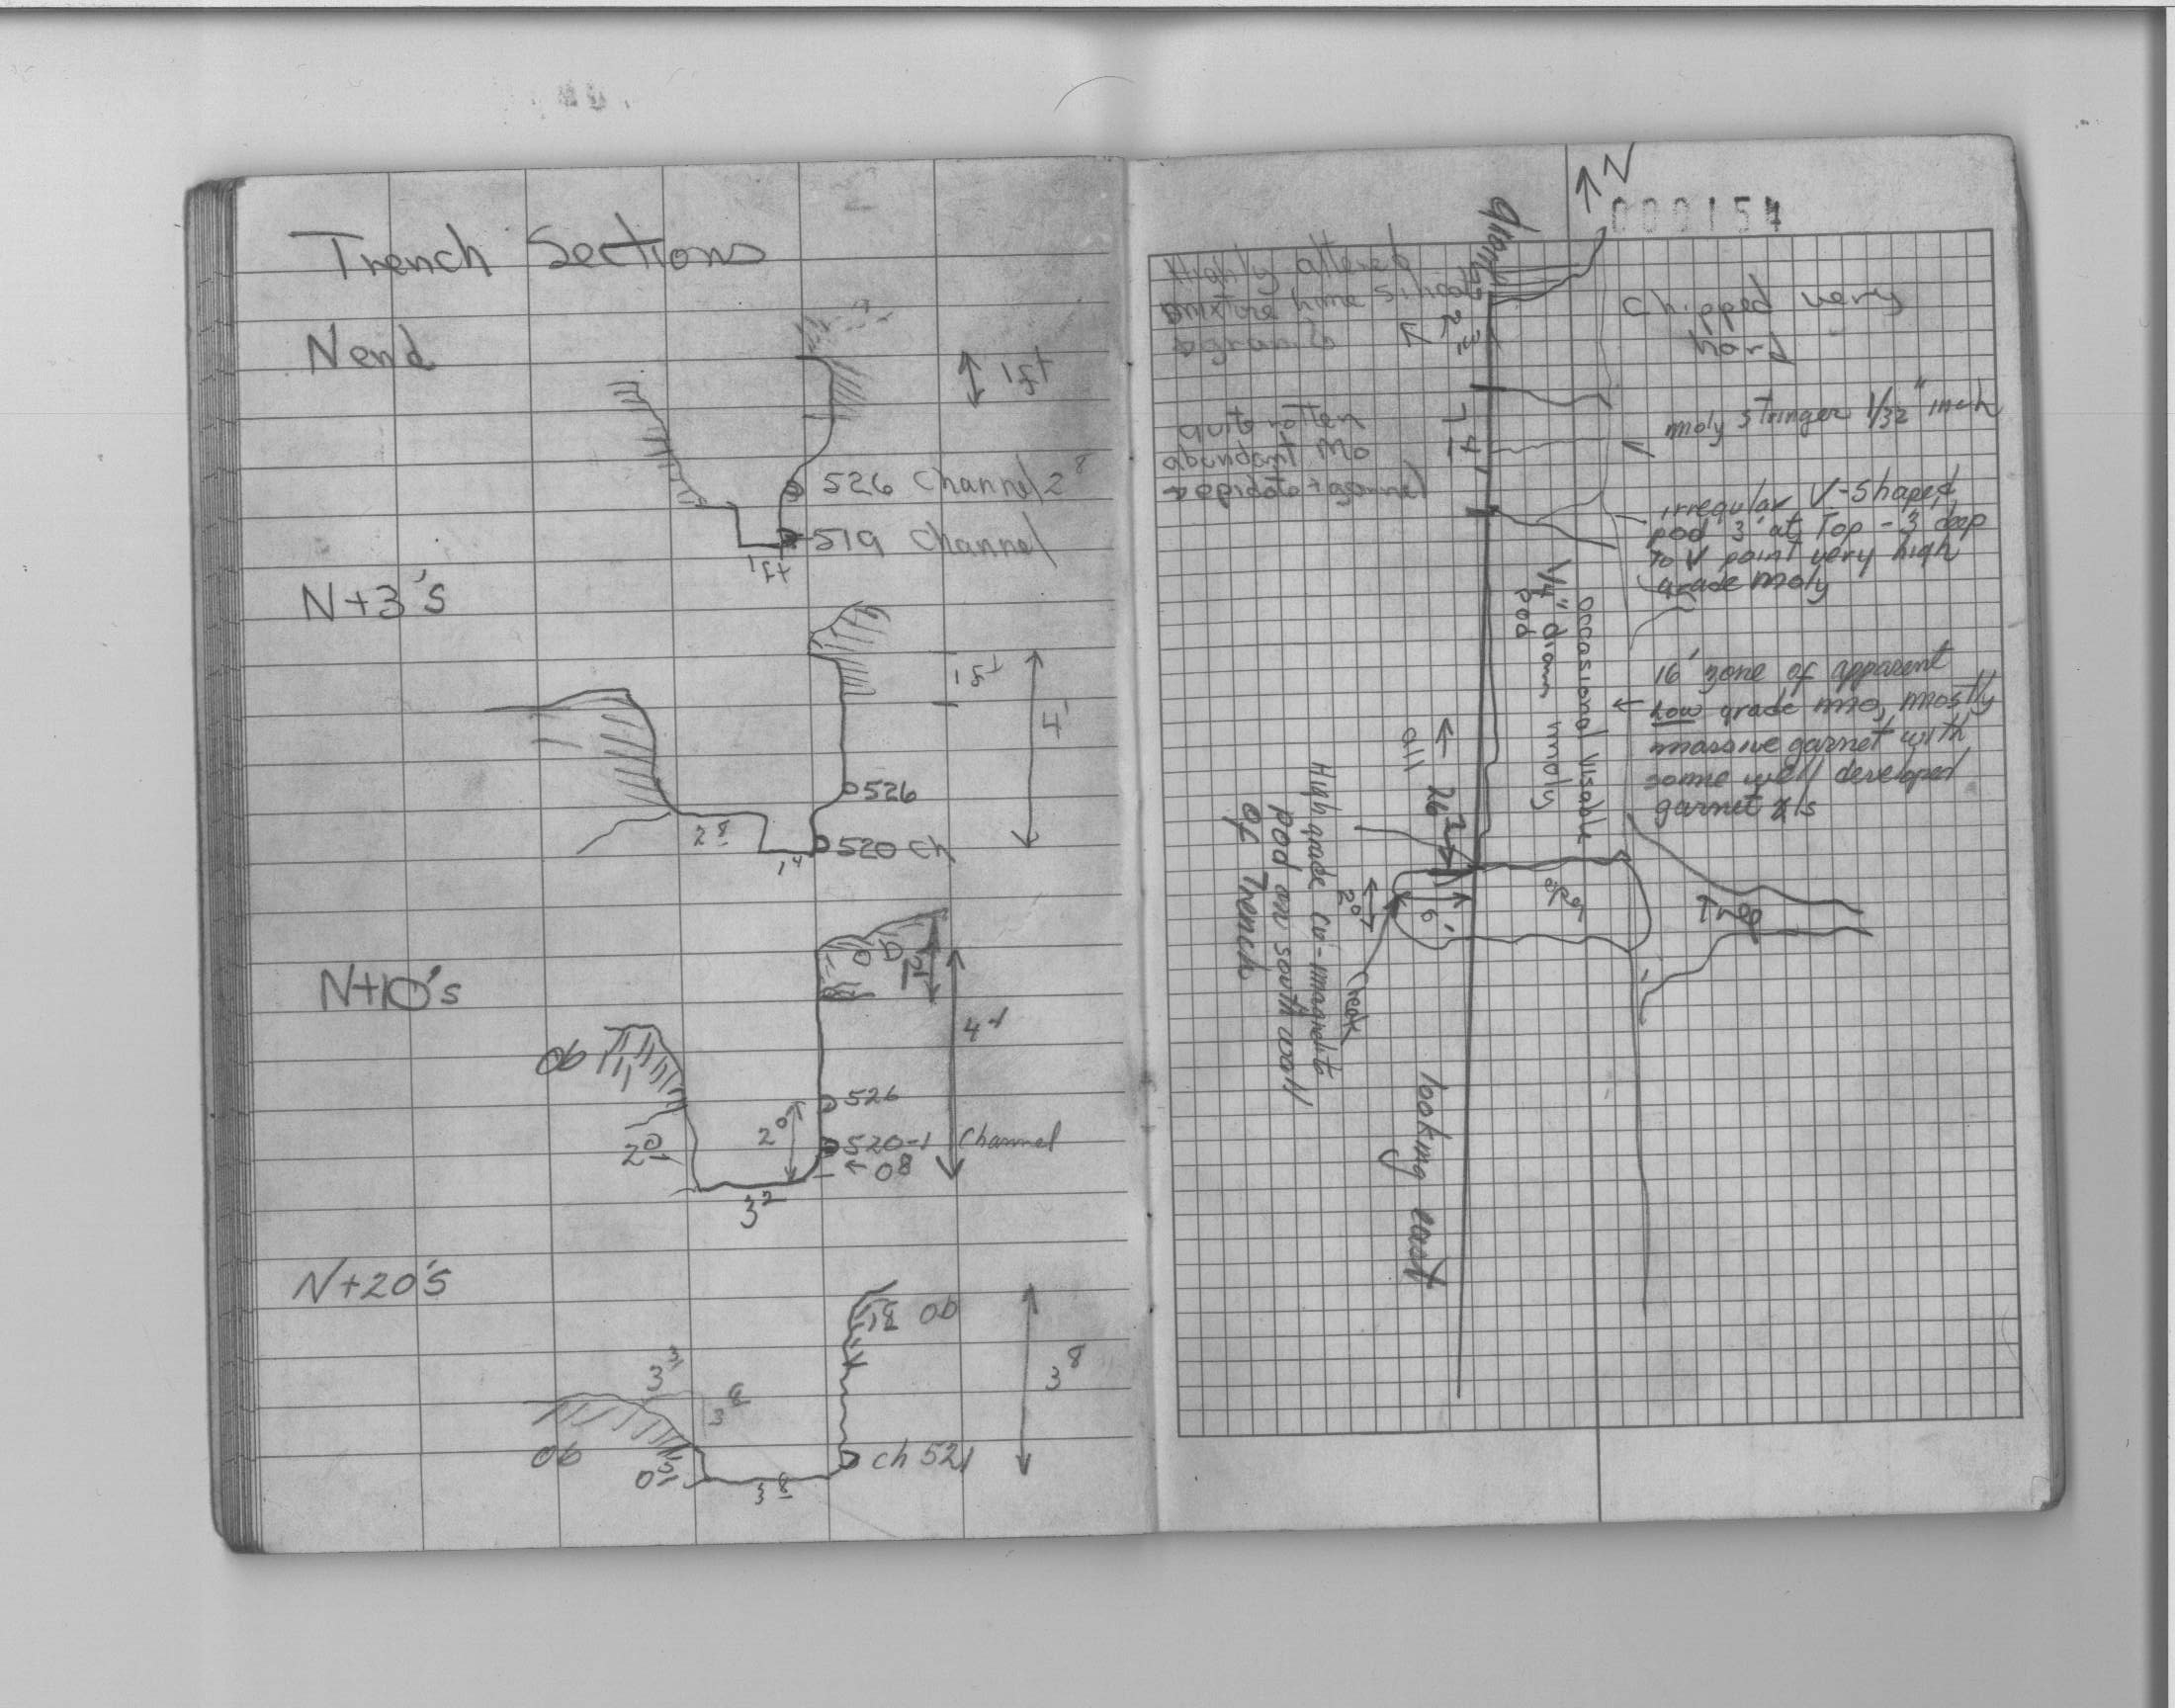 Trench Sections
N end
1 ft
526 Channel 2 8
519 Channel
1 ft
N+3's
1 ft
4'
526
2 8
520 ch
1 4
N+10's
Ob
4
Ob
526
2 0
520-1 Channel
2 0
← 0 8
3 2
N+20's
Ob
3 8
3 3
3 8
Ob
0 5
ch 521
3 8
N
000154
granite
Highly altered
mixture lime silicate
granite
Chipped very
hard
moly stringer 1/32" inch
7 ft
quite rotten
abundant Mo
epidote + garnet
irregular V-shaped
pod 3' at Top - 3' deep
To V point very high
grade moly
occasional visable
1/4" diam moly
pod
16' zone of apparent
low grade mo, mostly
massive garnet with
some well developed
garnet xls
all
26
High grade cu-magnetite
pod on south wall
of Trench
2 0
6'
Creek
Trep
looking east